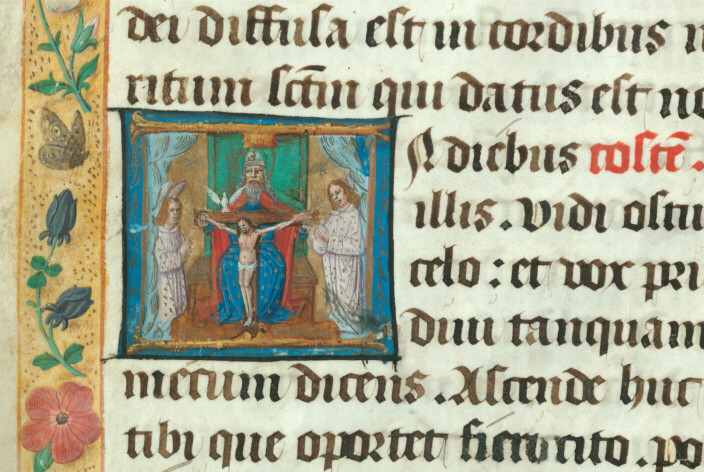 dei diffusa est in cordibus n
ritum sctm qui datus est no
N diebus
illis. vidi ostiu
celo: et vox pri
diui tanquam
mecum dicens. Ascende huc
tibi que oportet fieri cito. po